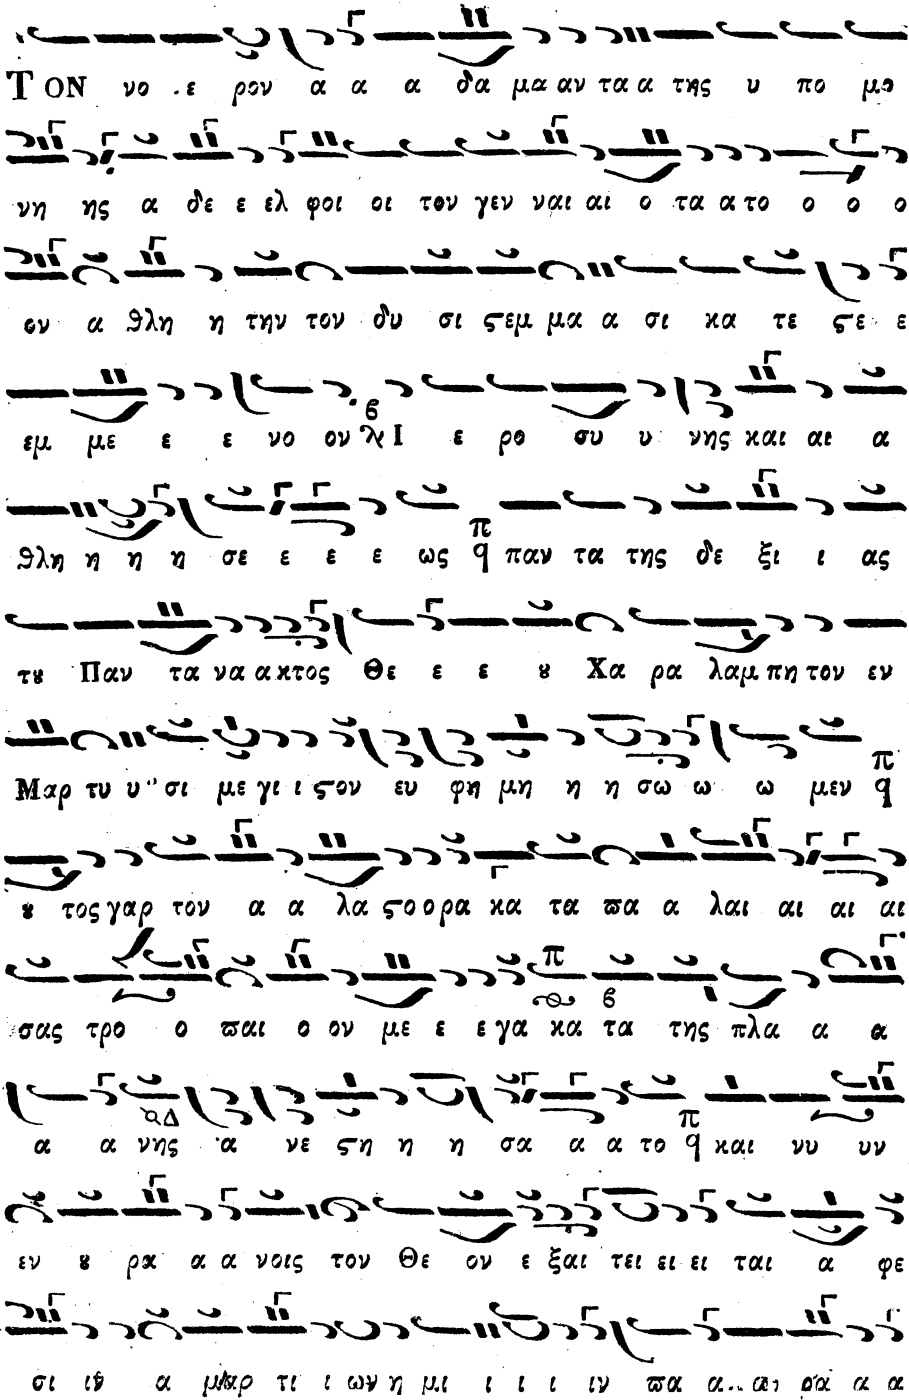 ΤΟΝ νο ε ρον α α α δα μα αν τα α της υ πο μο
νη ης α δε ε ελ φοι οι τον γεν ναι αι ο τα α το ο ο ο
ον α θλη η την τον δυ σι ϛεμ μα α σι κα τε ϛε ε
εμ με ε ε νο ον Ι ε ρο συ υ νης και αι α
θλη η η η σε ε ε ε ως π q παν τα της δε ξι ι ας
τȣ Παν τα να α κτος Θε ε ε ȣ Χα ρα λαμ πη τον εν
Μαρ τυ υ σι με γι ι ϛον ευ φη μη η η σω ω ω μεν π q
ȣ τος γαρ τον α α λα ϛο ο ρα κα τα ϖα α λαι αι αι αι
σας τρο ο ϖαι ο ον με ε ε γα κα τα της πλα α α
α α νης α νε ϛη η η σα α α το π q και νυ υν
εν ȣ ρα α α νοις τον Θε ον ε ξαι τει ει ει ται α φε
σι ιν α μαρ τι ι ων η μι ι ι ι ιν ϖα α αι ρα α α